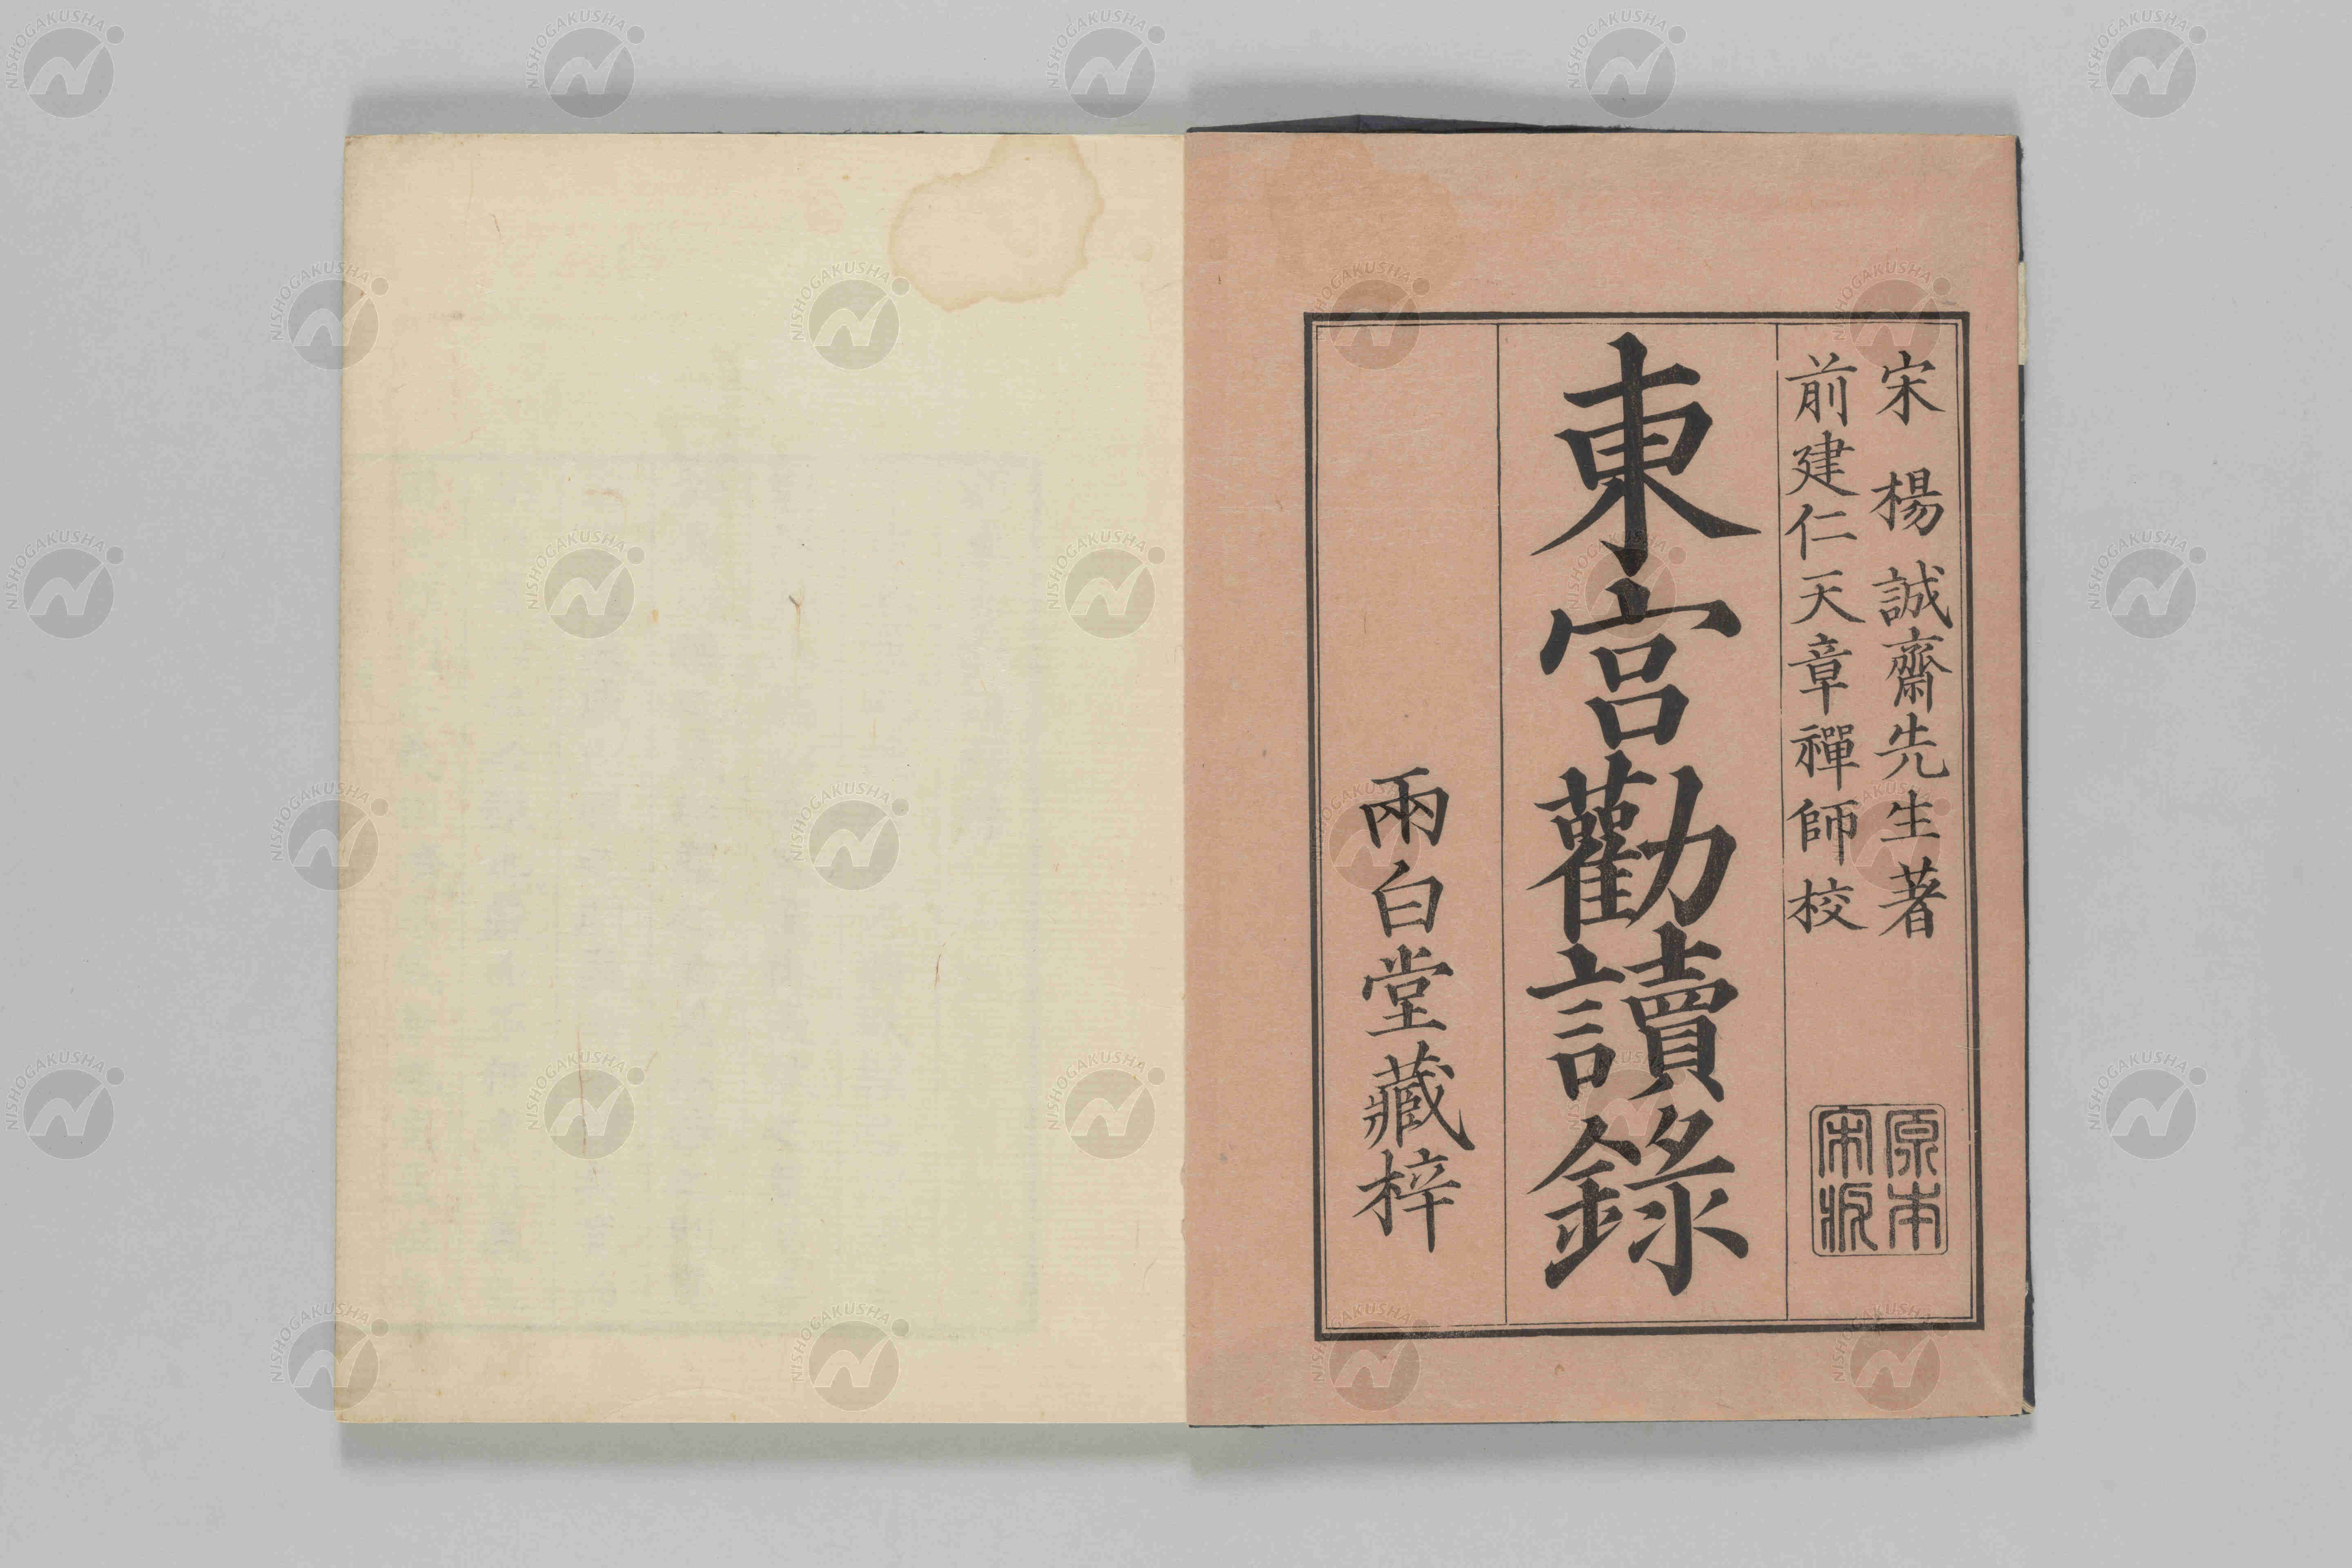 宋 楊誠齋先生著
前建仁天章禪師校
原本
宋板
東宮勸讀錄
兩白堂藏梓
NISHOGAKUSHA